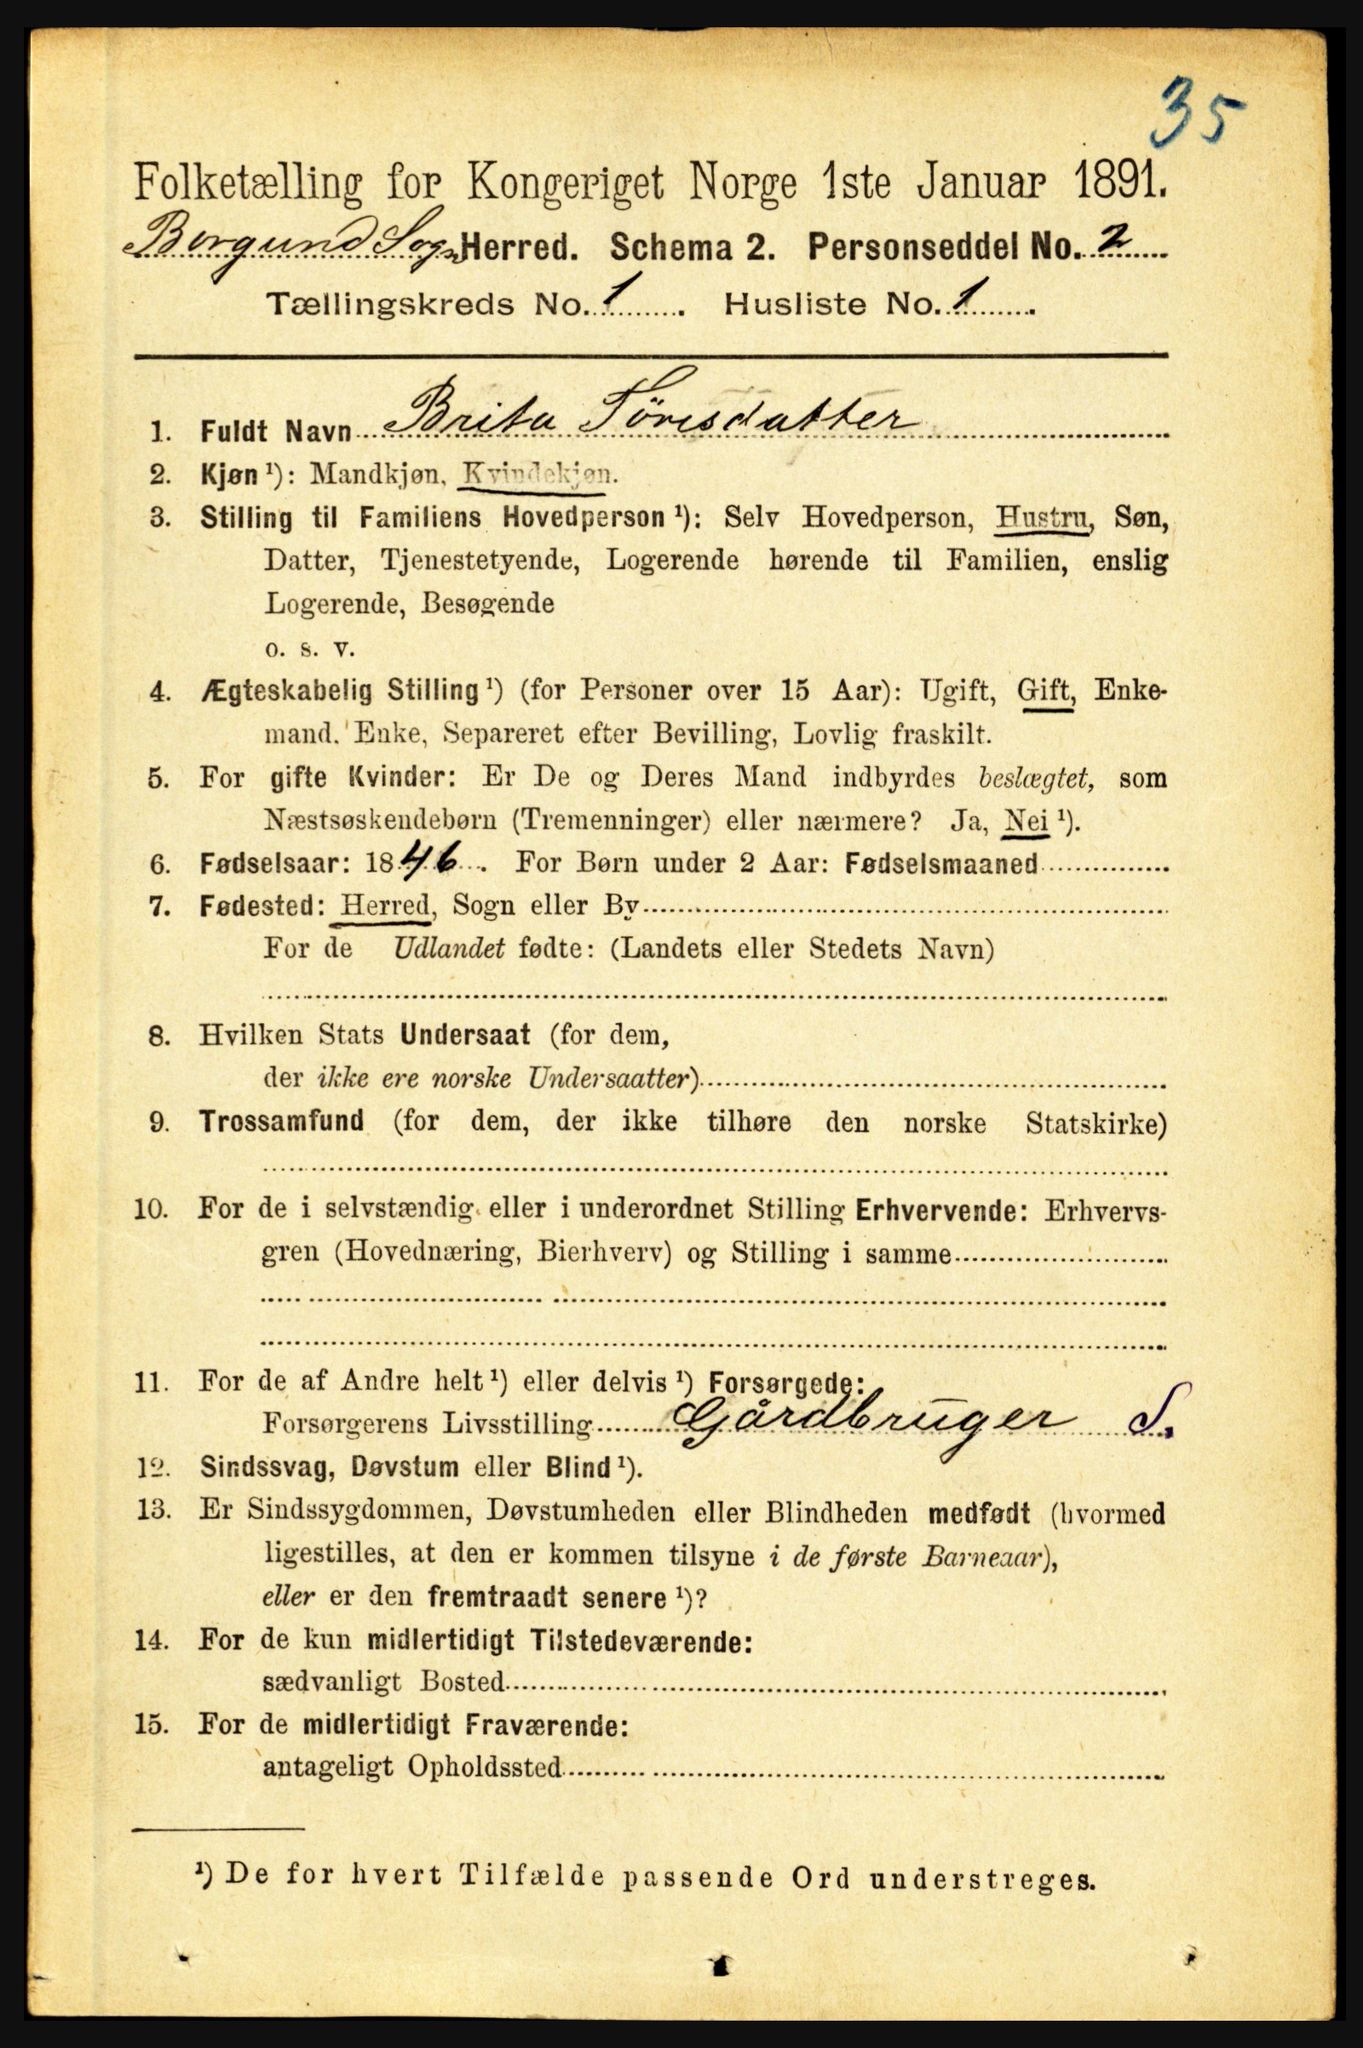 35
Folketælling for Kongeriget Norge 1ste Januar 1891.
Borgund Sogn Herred. Schema 2. Personseddel No. 2
Tællingskreds No. 1. Husliste No. 1.
1. Fuldt Navn Brita Sörisdatter
2. Kjøn ¹): Mandkjøn, Kvindekjøn.
3. Stilling til Familiens Hovedperson ¹): Selv Hovedperson, Hustru, Søn,
Datter, Tjenestetyende, Logerende hørende til Familien, enslig
Logerende, Besøgende
o. s. v.
4. Ægteskabelig Stilling ¹) (for Personer over 15 Aar): Ugift, Gift, Enke-
mand, Enke, Separeret efter Bevilling, Lovlig fraskilt.
5. For gifte Kvinder: Er De og Deres Mand indbyrdes beslægtet, som
Næstsøskendebørn (Tremenninger) eller nærmere? Ja, Nei ¹).
6. Fødselsaar: 1846. For Børn under 2 Aar: Fødselsmaaned
7. Fødested: Herred, Sogn eller By
For de Udlandet fødte: (Landets eller Stedets Navn)
8. Hvilken Stats Undersaat (for dem,
der ikke ere norske Undersaatter)
9. Trossamfund (for dem, der ikke tilhøre den norske Statskirke)
10. For de i selvstændig eller i underordnet Stilling Erhvervende: Erhvervs-
gren (Hovednæring, Bierhverv) og Stilling i samme
11. For de af Andre helt ¹) eller delvis ¹) Forsørgede:
Forsørgerens Livsstilling Gårdbruger S.
12. Sindssvag, Døvstum eller Blind ¹).
13. Er Sindssygdommen, Døvstumheden eller Blindheden medfødt (hvormed
ligestilles, at den er kommen tilsyne i de første Barneaar),
eller er den fremtraadt senere ¹)?
14. For de kun midlertidigt Tilstedeværende:
sædvanligt Bosted
15. For de midlertidigt Fraværende:
antageligt Opholdssted
¹) De for hvert Tilfælde passende Ord understreges.